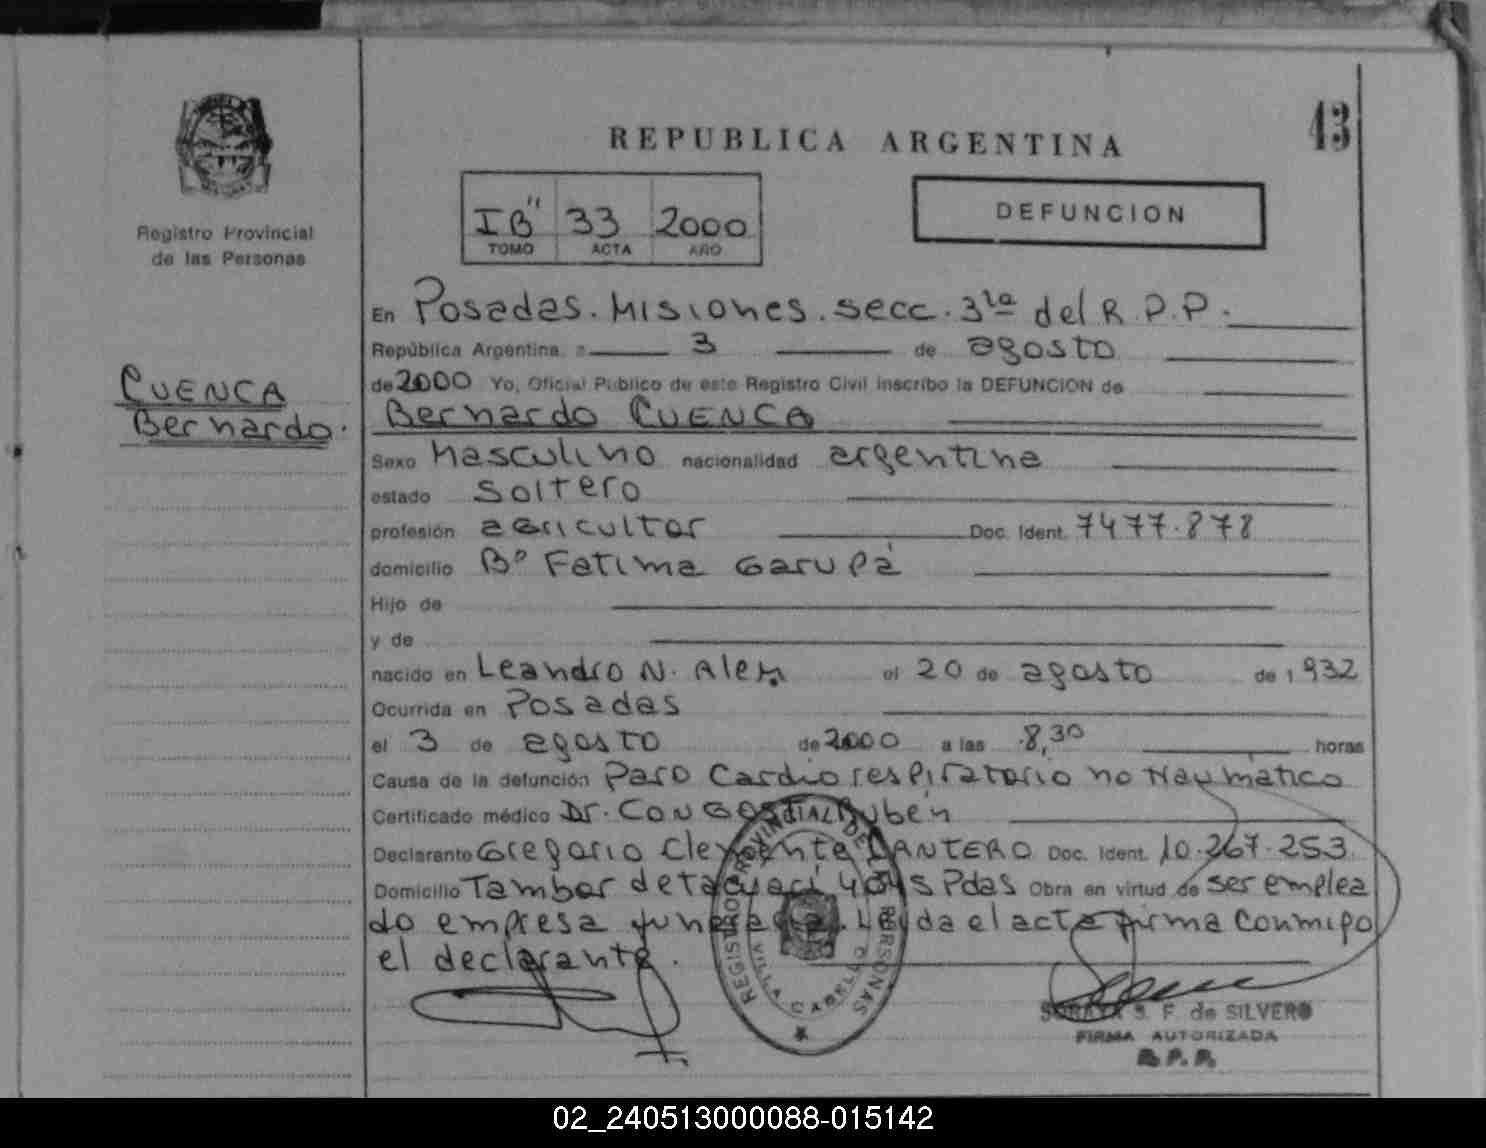 43
REPUBLICA ARGENTINA
IB" 33 2000
TOMO ACTA AÑO
DEFUNCION
Registro Provincial
de las Personas
CUENCA
Bernardo.
En Posadas. Misiones. secc. 3ra del R.P.P.
República Argentina, a 3 de agosto
de 2000 Yo, Oficial Público de este Registro Civil inscribo la DEFUNCION de
Bernardo CUENCA
Sexo Masculino nacionalidad argentina
estado soltero
profesión agricultor Doc. Ident. 7477.878
domicilio Bº Fatima Garupá
Hijo de
y de
nacido en Leandro N. Alem el 20 de agosto de 1932
Ocurrida en Posadas
el 3 de agosto de 2000 a las 8,30 horas
Causa de la defunción Paro Cardio respiratorio no traumático
Certificado médico Dr. Rubén
Declarante Gregorio Clemente CANTERO Doc. Ident. 10.267.253
Domicilio Tambor de Pdas Obra en virtud de ser emplea
do empresa funeraria. Leida el acta firma conmigo
el declarante.
REGISTRO PROVINCIAL DE LAS PERSONAS
VILLA CABELLO
SORAYA S. F. de SILVERO
FIRMA AUTORIZADA
R.P.P.
02_240513000088-015142